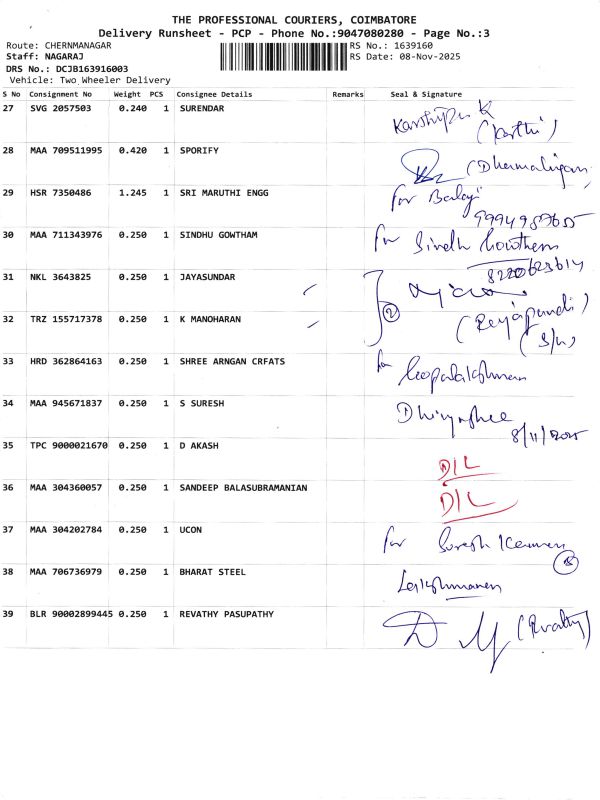 THE PROFESSIONAL COURIERS, COIMBATORE
Delivery Runsheet - PCP - Phone No.:9047080280 - Page No.:3
Route: CHERNMANAGAR
RS No.: 1639160
Staff: NAGARAJ
RS Date: 08-Nov-2025
DRS No.: DCJB163916003
Vehicle: Two Wheeler Delivery
S No Consignment No Weight PCS Consignee Details Remarks Seal & Signature
27 SVG 2057503 0.240 1 SURENDAR
(Karthi)
28 MAA 709511995 0.420 1 SPORIFY
(Dharmalingam)
29 HSR 7350486 1.245 1 SRI MARUTHI ENGG
for Balaji
9994987655
30 MAA 711343976 0.250 1 SINDHU GOWTHAM
for Sindhu Gowtham
8220623614
31 NKL 3643825 0.250 1 JAYASUNDAR
2
32 TRZ 155717378 0.250 1 K MANOHARAN
(S/W)
33 HRD 362864163 0.250 1 SHREE ARNGAN CRFATS
for Gopalakrishnan
34 MAA 945671837 0.250 1 S SURESH
8/11/2025
35 TPC 9000021670 0.250 1 D AKASH
D/L
36 MAA 304360057 0.250 1 SANDEEP BALASUBRAMANIAN
D/L
37 MAA 304202784 0.250 1 UCON
for Suresh Kumar
38 MAA 706736979 0.250 1 BHARAT STEEL
Lakshmanan
39 BLR 90002899445 0.250 1 REVATHY PASUPATHY
(Revathy)